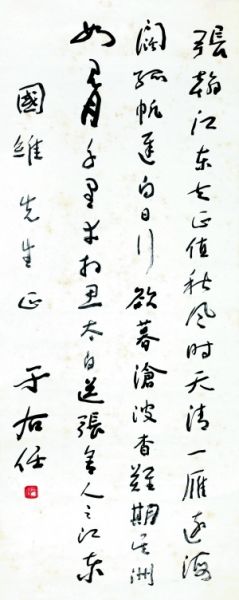 張翰江东去正值秋风时天清一雁遠海
阔孤帆遲白日行欲暮滄波杳難期吴洲
如見月千里幸相思太白送張舍人之江东
國維先生正
于右任